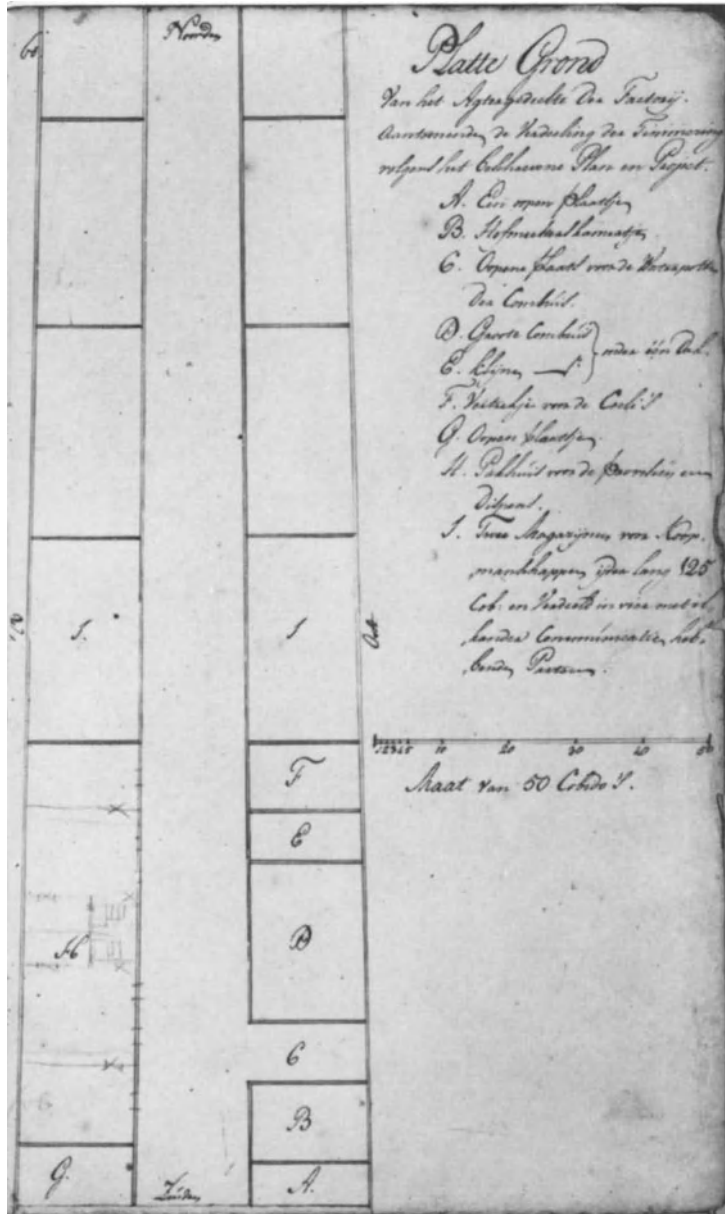 Noorden
Platte Grond
Van het Agtergedeelte der Factory.
Aantoonende, de Verdeeling der Timmering
volgens het Plan en Project.
A. Een open plaatsje,
B. Hofmeesterskamertje.
C. Oopene plaats voor de Waterpotten
der Combuis.
D. Groote Combuis
E. kleyne
onder één Dak.
F. Vertrekje voor de Coeli's
G. Oopen plaatsje.
H. Pakhuis voor de en
Dispens.
I. Twee Magazynen voor Koop-
manschappen, ider lang 125
Cob: en Verdeeld in vier met el-
kander Communicatie heb-
bende,
I.
I
Oost
F
1 2 3 4 5 10 20 30 40 50
Maat van 50 Cobido's.
E
D
H
C
B
G.
Zuiden
A.